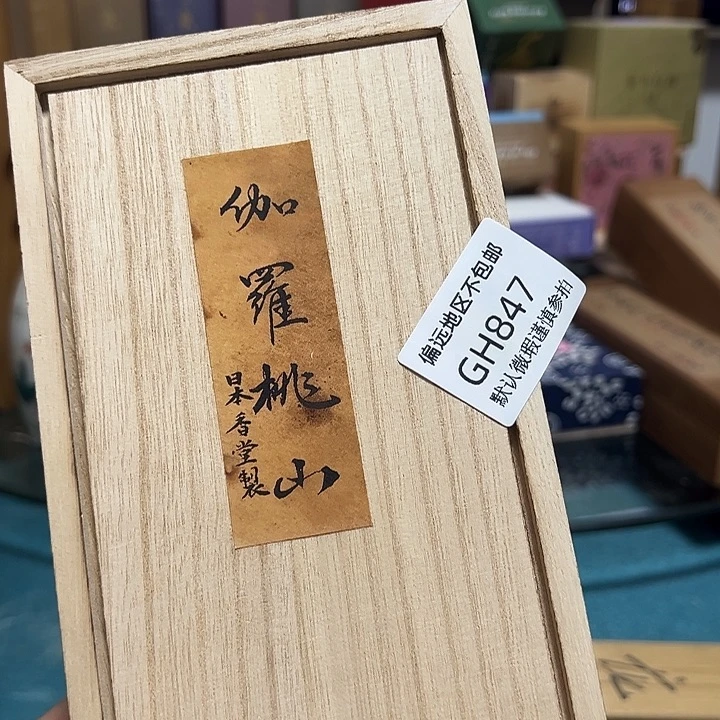 伽羅桃山
日本香堂製
偏远地区不包邮
GH847
默认微瑕谨慎参拍